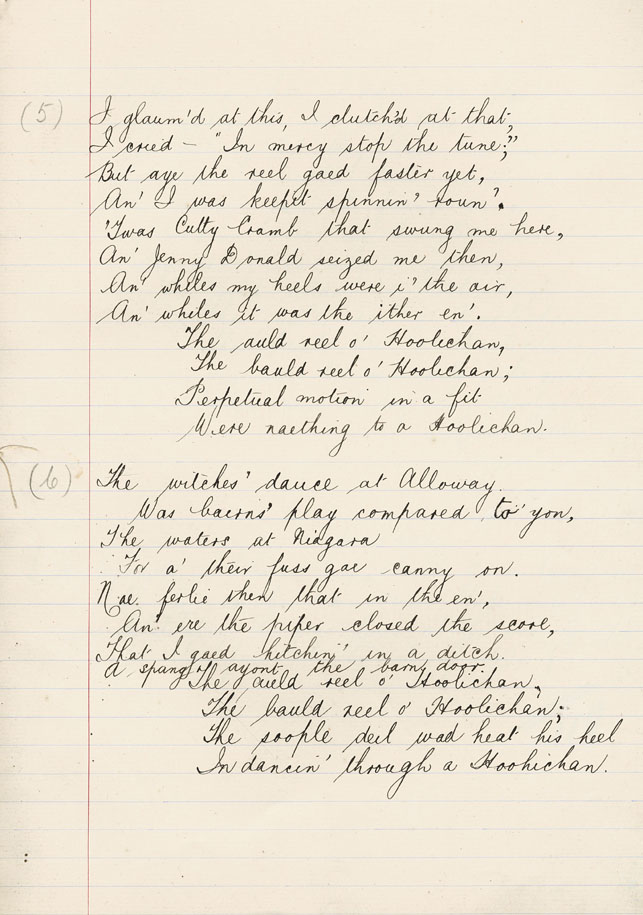 (5)
I glaum'd at this, I clutch'd at that,
I cried — "In mercy stop the tune;"
But aye the reel gaed faster yet,
An' I was keepit spinnin' roun'.
'Twas Cutty Cramb that swung me here,
An' Jenny Donald seized me then,
An' whiles my heels were i' the air,
An' whiles it was the ither en'.
The auld reel o' Hoolichan,
The bauld reel o' Hoolichan;
Perpetual motion in a fit
Were naething to a Hoolichan.
(6)
The witches' dance at Alloway
Was bairns' play compared to yon,
The waters at Niagara
For a' their fuss gae canny on.
Nae ferlie then that in the en',
An' ere the piper closed the score,
That I gaed hitchin' in a ditch.
A spang ayont the barn door.
The auld reel o' Hoolichan,
The bauld reel o' Hoolichan;
The soople deil wad heat his heel
In dancin' through a Hoohichan.